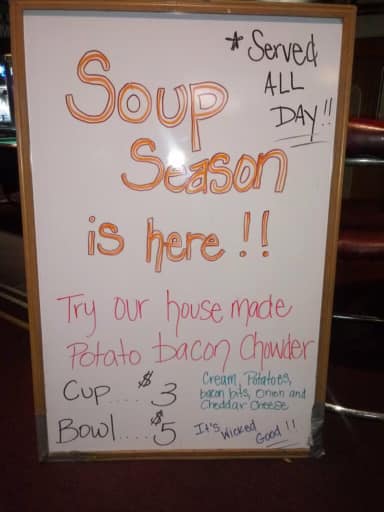 * Served
ALL
DAY!!
Soup
Season
is here!!
Try our house made
Potato bacon Chowder
Cup.....$3
Bowl....$5
Cream, Potatoes,
bacon bits, Onion and
Cheddar Cheese
It's Wicked
Good!!